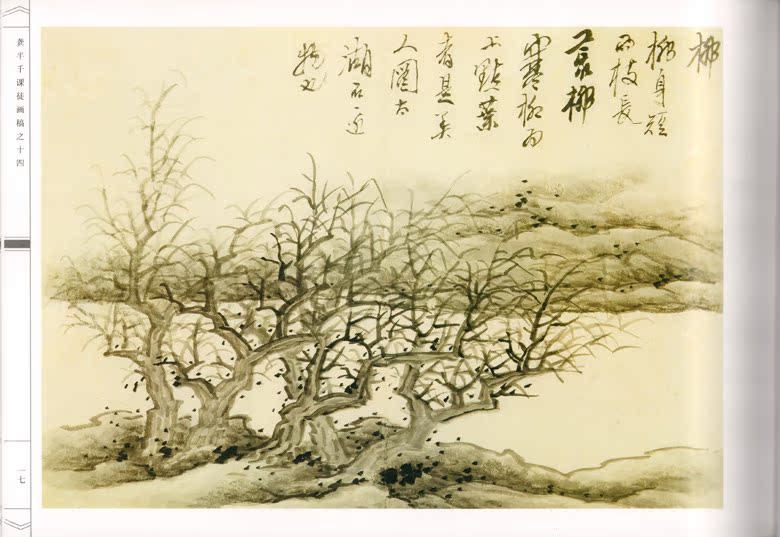 柳
柳身短
而枝長
荒柳
寒柳而
上點葉
者是美
人圖太
湖石边
物也
龚半千课徒画稿之十四
一七